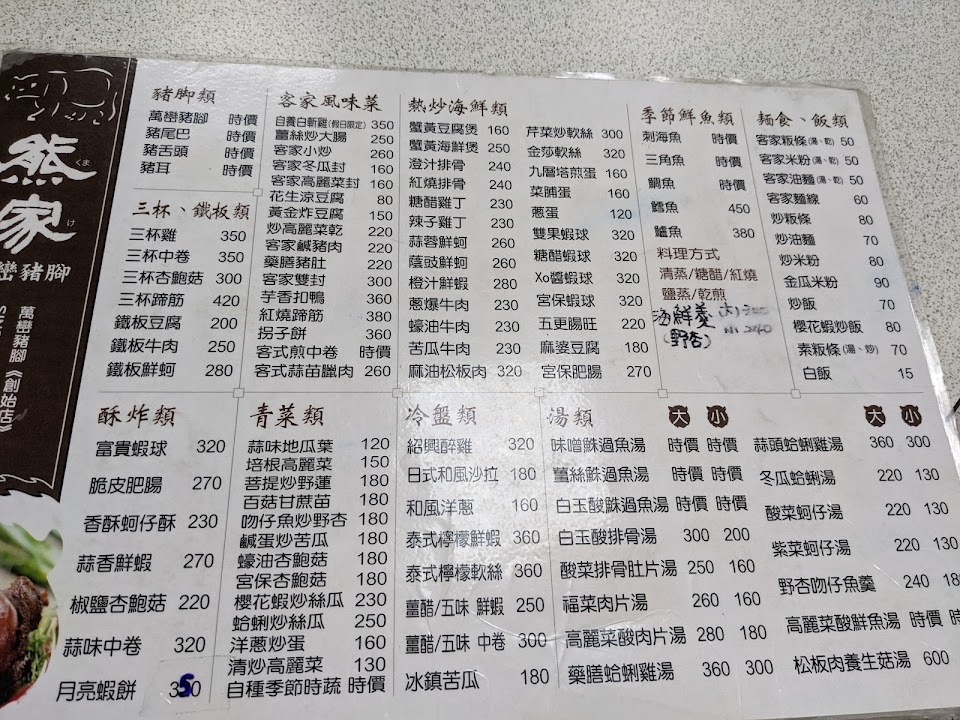 熊家
くま
け
巒豬腳
萬巒豬腳《創始店》
豬腳類
萬巒豬腳 時價
豬尾巴 時價
豬舌頭 時價
豬耳 時價
三杯、鐵板類
三杯雞 350
三杯中卷 350
三杯杏鮑菇 300
三杯蹄筋 420
鐵板豆腐 200
鐵板牛肉 250
鐵板鮮蚵 280
客家風味菜
自養白斬雞(假日限定) 350
薑絲炒大腸 250
客家小炒 260
客家冬瓜封 160
客家高麗菜封 160
花生涼豆腐 80
黃金炸豆腐 150
炒高麗菜乾 220
客家鹹豬肉 220
藥膳豬肚 220
客家雙封 300
芋香扣鴨 360
紅燒蹄筋 380
拐子餅 360
客式煎中卷 時價
客式蒜苗臘肉 260
熱炒海鮮類
蟹黃豆腐煲 160
蟹黃海鮮煲 250
澄汁排骨 240
紅燒排骨 240
糖醋雞丁 230
辣子雞丁 230
蒜蓉鮮蚵 260
蔭豉鮮蚵 260
橙汁鮮蝦 280
蔥爆牛肉 230
蠔油牛肉 230
苦瓜牛肉 230
麻油松板肉 320
芹菜炒軟絲 300
金莎軟絲 320
九層塔煎蛋 160
菜脯蛋 160
蔥蛋 120
雙果蝦球 320
糖醋蝦球 320
Xo醬蝦球 320
宮保蝦球 320
五更腸旺 220
麻婆豆腐 180
宮保肥腸 270
季節鮮魚類
刺海魚 時價
三角魚 時價
鯛魚 時價
鱈魚 450
鱸魚 380
料理方式
清蒸/糖醋/紅燒
鹽蒸/乾煎
海鮮羹 大)300
(野杏) 小 240
麵食、飯類
客家粄條(湯、乾) 50
客家米粉(湯、乾) 50
客家油麵(湯、乾) 50
客家麵線 60
炒粄條 80
炒油麵 70
炒米粉 80
金瓜米粉 90
炒飯 70
櫻花蝦炒飯 80
素粄條(湯、炒) 70
白飯 15
酥炸類
富貴蝦球 320
脆皮肥腸 270
香酥蚵仔酥 230
蒜香鮮蝦 270
椒鹽杏鮑菇 220
蒜味中卷 320
月亮蝦餅 350
青菜類
蒜味地瓜葉 120
培根高麗菜 150
菩提炒野蓮 180
百菇甘蔗苗 180
吻仔魚炒野杏 180
鹹蛋炒苦瓜 180
蠔油杏鮑菇 180
宮保杏鮑菇 180
櫻花蝦炒絲瓜 230
蛤蜊炒絲瓜 250
洋蔥炒蛋 160
清炒高麗菜 130
自種季節時蔬 時價
冷盤類
紹興醉雞 320
日式和風沙拉 180
和風洋蔥 160
泰式檸檬鮮蝦 360
泰式檸檬軟絲 360
薑醋/五味 鮮蝦 250
薑醋/五味 中卷 300
冰鎮苦瓜 180
湯類 大 小
味噌鮢過魚湯 時價 時價
薑絲鮢過魚湯 時價 時價
白玉酸鮢過魚湯 時價 時價
白玉酸排骨湯 300 200
酸菜排骨肚片湯 250 160
福菜肉片湯 260 160
高麗菜酸肉片湯 280 180
藥膳蛤蜊雞湯 360 300
大 小
蒜頭蛤蜊雞湯 360 300
冬瓜蛤蜊湯 220 130
酸菜蚵仔湯 220 130
紫菜蚵仔湯 220 130
野杏吻仔魚羹 240 180
高麗菜酸鮮魚湯 時價 時
松板肉養生菇湯 600